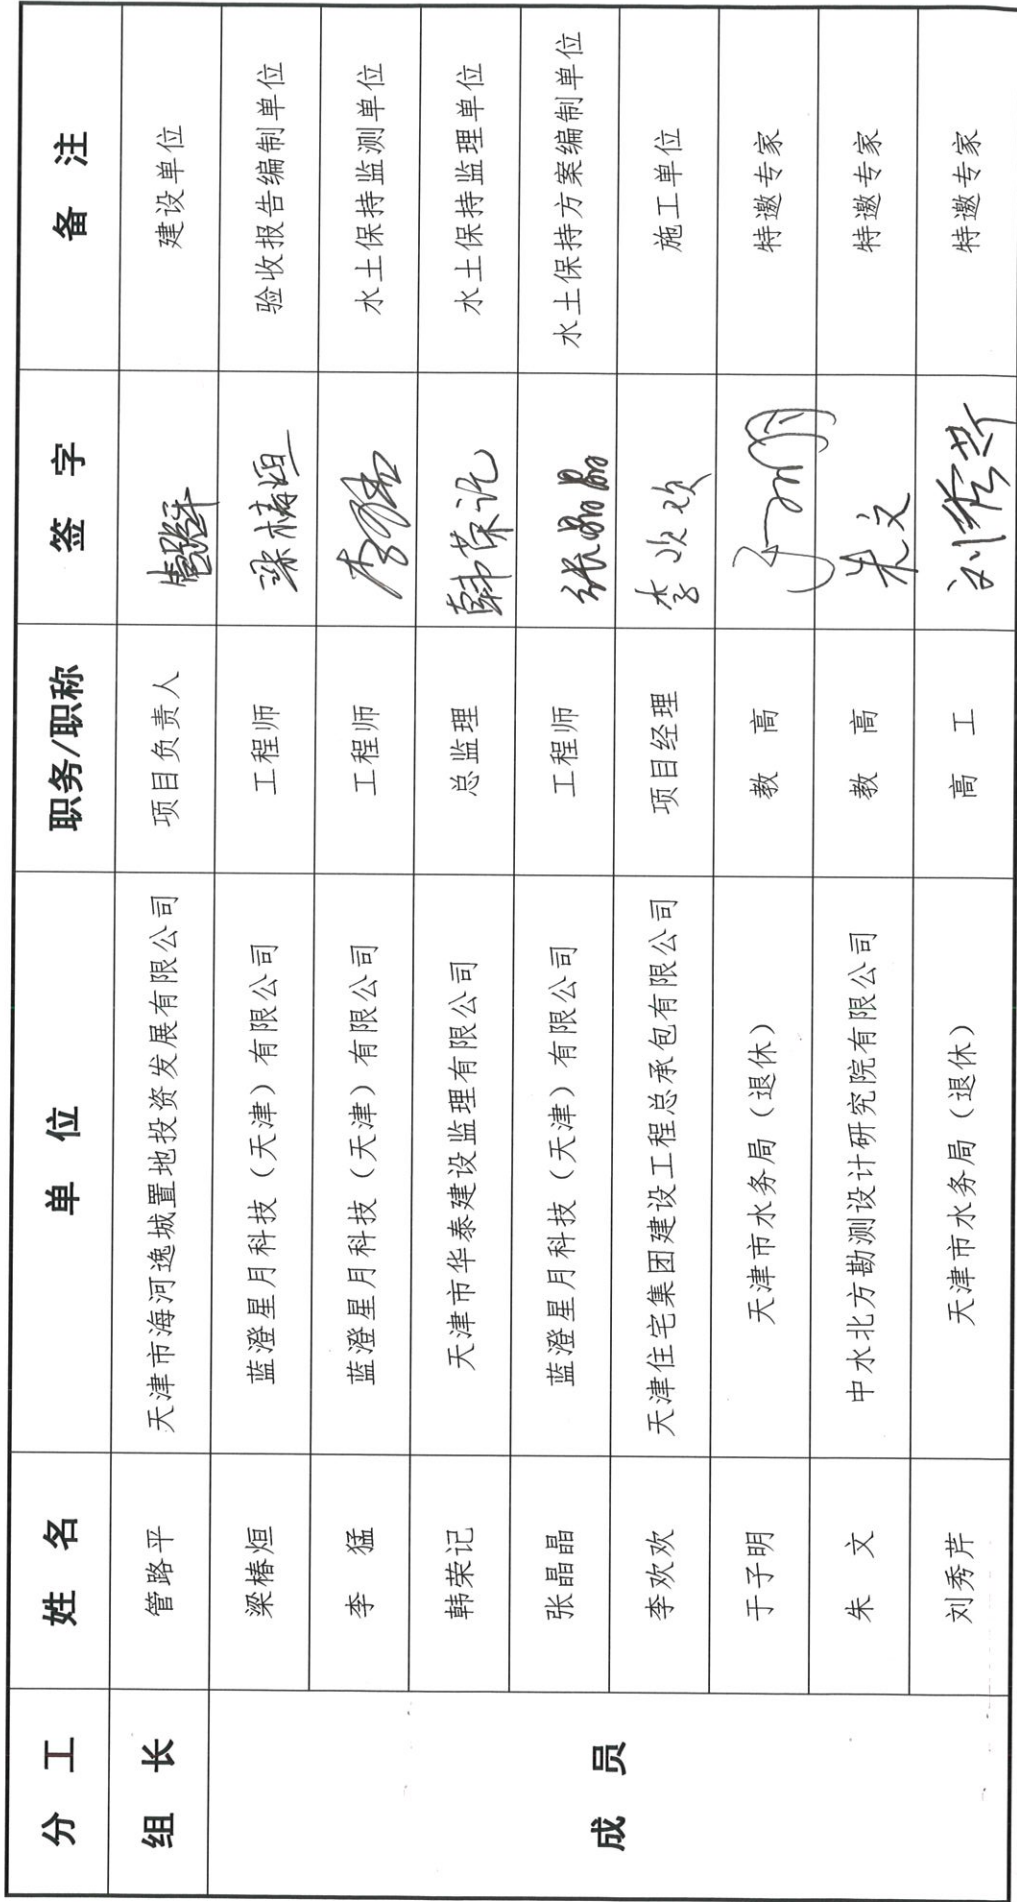 分 工 姓 名 单 位 职务/职称 签 字 备 注
组 长 管路平 天津市海河逸城置地投资发展有限公司 项目负责人 管路平 建设单位
成 员 梁椿烜 蓝澄星月科技（天津）有限公司 工程师 梁椿烜 验收报告编制单位
李 猛 蓝澄星月科技（天津）有限公司 工程师 李猛 水土保持监测单位
韩荣记 天津市华泰建设监理有限公司 总监理 韩荣记 水土保持监理单位
张晶晶 蓝澄星月科技（天津）有限公司 工程师 张晶晶 水土保持方案编制单位
李欢欢 天津住宅集团建设工程总承包有限公司 项目经理 李欢欢 施工单位
于子明 天津市水务局（退休） 教 高 于子明 特邀专家
朱 文 中水北方勘测设计研究院有限公司 教 高 朱文 特邀专家
刘秀芹 天津市水务局（退休） 高 工 刘秀芹 特邀专家